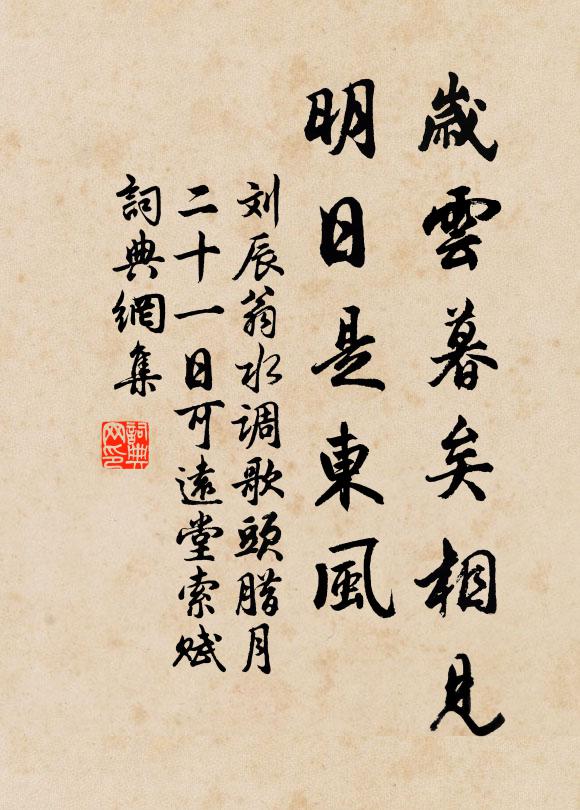 歲雲暮矣相見
明日是東風
刘辰翁水调歌頭腊月
二十一日可遠堂索赋
詞典網集
詞典
网印